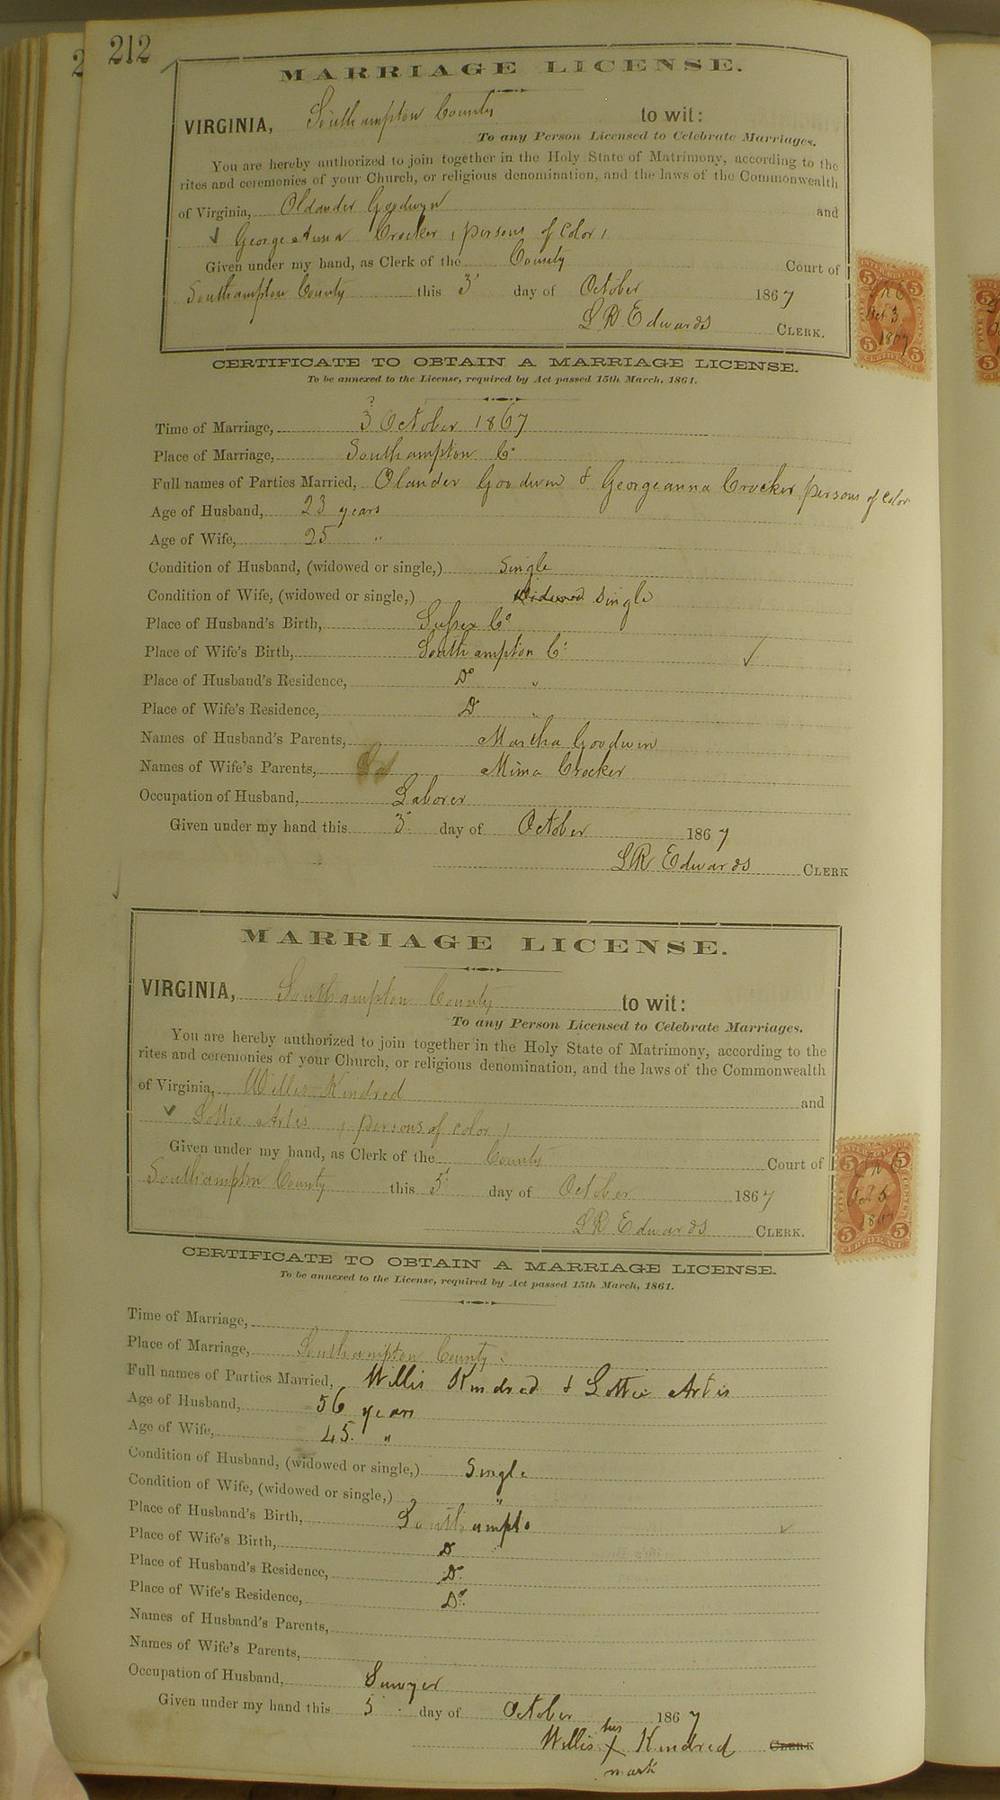 212
MARRIAGE LICENSE.
VIRGINIA, Southampton County to wit:
To any Person Licensed to Celebrate Marriages.
You are hereby authorized to join together in the Holy State of Matrimony, according to the
rites and ceremonies of your Church, or religious denomination, and the laws of the Commonwealth
of Virginia, Olander Goodwyn and
✓ Georgeanna Crocker, persons of color,
Given under my hand, as Clerk of the County Court of
Southampton County this 3 day of October 1867
LR Edwards CLERK.
INTER. REVENUE
5 5
LRE
Oct 3
1867
5 5
CERTIFICATE
CERTIFICATE TO OBTAIN A MARRIAGE LICENSE.
To be annexed to the License, required by Act passed 15th March, 1861.
Time of Marriage, 3 October 1867
Place of Marriage, Southampton Co
Full names of Parties Married, Olander Goodwin & Georgeanna Crocker persons of color
Age of Husband, 23 years
Age of Wife, 25 "
Condition of Husband, (widowed or single,) Single
Condition of Wife, (widowed or single,) Widowed Single
Place of Husband's Birth, Sussex Co
Place of Wife's Birth, Southampton Co ✓
Place of Husband's Residence, Do "
Place of Wife's Residence, Do "
Names of Husband's Parents, Martha Goodwin
Names of Wife's Parents, Mima Crocker
Occupation of Husband, Laborer
Given under my hand this 3 day of October 1867
LR Edwards CLERK
MARRIAGE LICENSE.
VIRGINIA, Southampton County to wit:
To any Person Licensed to Celebrate Marriages.
You are hereby authorized to join together in the Holy State of Matrimony, according to the
rites and ceremonies of your Church, or religious denomination, and the laws of the Commonwealth
of Virginia, Willis Kindred and
✓ Lottie Artis, persons of color,
Given under my hand, as Clerk of the County Court of
Southampton County this 5 day of October 1867
LR Edwards CLERK.
5 5
LRE
Oct 5
1867
5 5
CERTIFICATE
CERTIFICATE TO OBTAIN A MARRIAGE LICENSE.
To be annexed to the License, required by Act passed 15th March, 1861.
Time of Marriage,
Place of Marriage, Southampton County.
Full names of Parties Married, Willis Kindred & Lottie Artis
Age of Husband, 56 years
Age of Wife, 45 "
Condition of Husband, (widowed or single,) Single
Condition of Wife, (widowed or single,) "
Place of Husband's Birth, Southampto
Place of Wife's Birth, Do
Place of Husband's Residence, Do
Place of Wife's Residence, Do
Names of Husband's Parents,
Names of Wife's Parents,
Occupation of Husband, Sawyer
Given under my hand this 5 day of October 1867
his
Willis X Kindred CLERK
mark